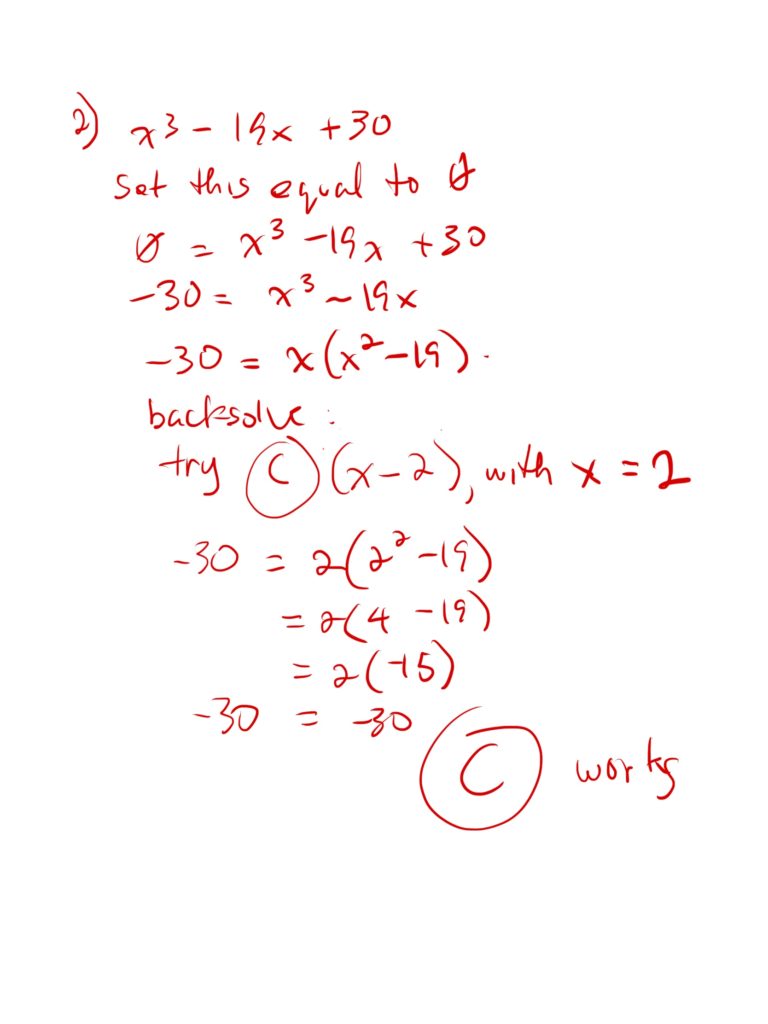 2) x³ - 19x + 30
Set this equal to 0
0 = x³ - 19x + 30
-30 = x³ - 19x
-30 = x(x² - 19).
backsolve:
try C (x - 2), with x = 2
-30 = 2(2² - 19)
= 2(4 - 19)
= 2(-15)
-30 = -30
C works